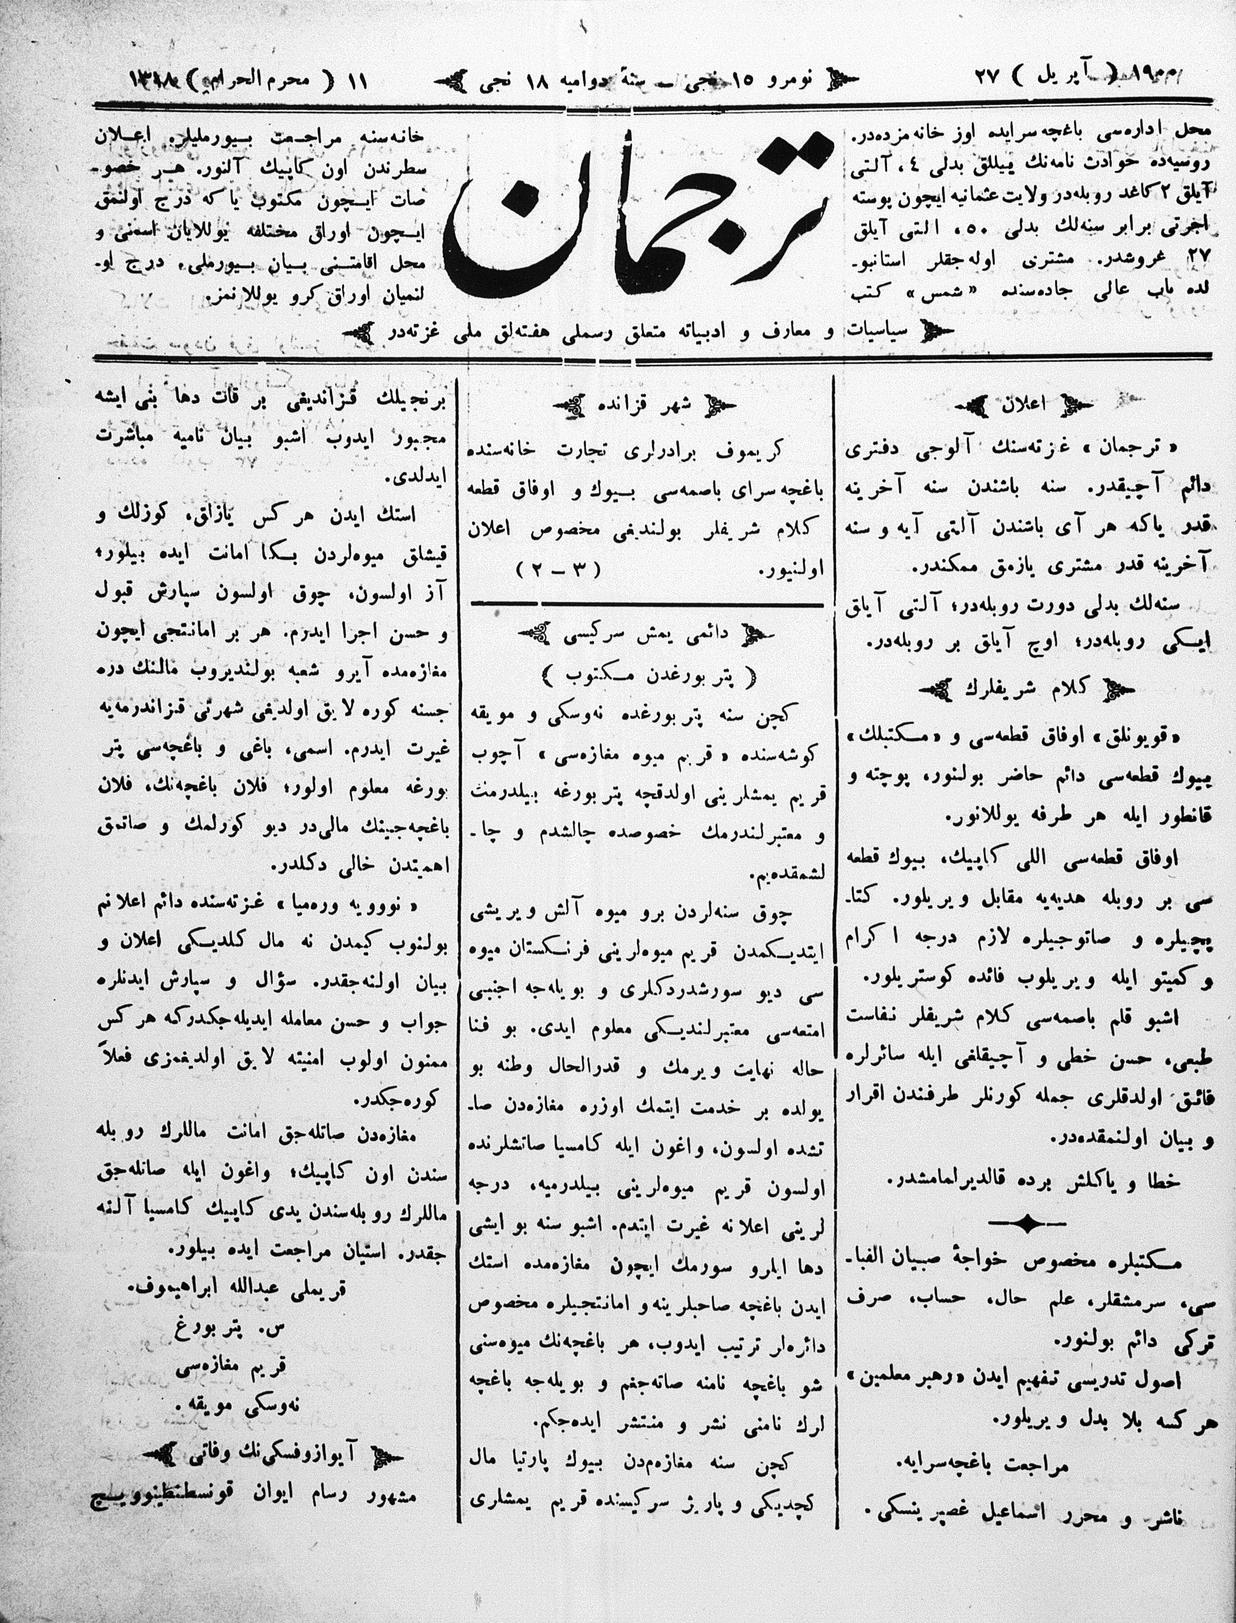 ١٩٠٠ ( آپریل ) ٢٧
نومرو ١٥ نجی — سنهٔ دوامیه ١٨ نجی
١١ ( محرم الحرام ) ١٣١٨
محل اداره‌سی باغچه سرایده اوز خانه مزده‌در.
روسیه‌ده حوادث نامه‌نك ییللق بدلی ٤، آلتی
آیلق ٢ كاغد روبله‌در ولایت عثمانیه ایچون پوسته
اجرتی برابر سنه‌لك بدلی ٥٠، التی آیلق
٢٧ غروشدر. مشتری اوله‌جقلر استانبو-
لده باب عالی جاده‌سنده «شمس» كتب
ترجمان
خانه‌سنه مراجعت بیورملیلر. اعلان
سطرندن اون كاپیك آلنور. هر خصو-
صات ایچون مكتوب یا كه درج اولنمق
ایچون اوراق مختلفه یوللایان اسمنی و
محل اقامتنی بیان بیورملی، درج او-
لنمیان اوراق كرو یوللانمز.
سیاسیات و معارف و ادبیاته متعلق رسملی هفته‌لق ملی غزته‌در
اعلان
«ترجمان» غزته‌سنك آلوجی دفتری
دائم آچیقدر. سنه باشندن سنه آخرینه
قدر یاكه هر آی باشندن آلتی آیه و سنه
آخرینه قدر مشتری یازمق ممكندر.
سنه‌لك بدلی دورت روبله‌در؛ آلتی آیلق
ایكی روبله‌در؛ اوچ آیلق بر روبله‌در.
كلام شریفلرك
«قویونلق» اوفاق قطعه‌سی و «مكتبلك»
بیوك قطعه‌سی دائم حاضر بولنور، پوچته و
قانطور ایله هر طرفه یوللانور.
اوفاق قطعه‌سی اللی كاپیك، بیوك قطعه
سی بر روبله هدیه‌یه مقابل ویریلور. كتا-
پچیلره و صاتوجیلره لازم درجه اكرام
و كمیتو ایله ویریلوب فائده كوستریلور.
اشبو قلم باصمه‌سی كلام شریفلر نفاست
طبعی، حسن خطی و آچیقلغی ایله سائرلره
فائق اولدقلری جمله كورنلر طرفندن اقرار
و بیان اولنمقده‌در.
خطا و یاكلش برده قالدیرلمامشدر.
مكتبلره مخصوص خواجهٔ صبیان الفبا-
سی، سرمشقلر، علم حال، حساب، صرف
تركی دائم بولنور.
اصول تدریسی تفهیم ایدن «رهبر معلمین»
هركسه بلا بدل ویریلور.
مراجعت باغچه‌سرایه.
ناشر و محرر اسماعیل غصپرینسكی.
شهر قزانده
كریموف برادرلری تجارت خانه‌سنده
باغچه‌سرای باصمه‌سی بیوك و اوفاق قطعه
كلام شریفلر بولندیغی مخصوص اعلان
اولنیور. (٣ — ٢)
دائمی یمش سركیسی
( پتربورغدن مكتوب )
كچن سنه پتربورغده نه‌وسكی و مویقه
كوشه‌سنده «قریم میوه مغازه‌سی» آچوب
قریم یمشلرینی اولدقچه پتربورغه بیلدرمك
و معتبرلندرمك خصوصده چالشدم و چا-
لشمقده‌یم.
چوق سنه‌لردن برو میوه آلش ویریشی
ایتدیكمدن قریم میوه‌لرینی فرنكستان میوه
سی دیو سورشدردكلری و بویله‌جه اجنبی
امتعه‌سی معتبرلندیكی معلوم ایدی. بو فنا
حاله نهایت ویرمك و قدرالحال وطنه بو
یولده بر خدمت ایتمك اوزره مغازه‌دن صا-
تشده اولسون، واغون ایله كامسیا صاتشلرنده
اولسون قریم میوه‌لرینی بیلدرمیه، درجه
لرینی اعلانه غیرت ایتدم. اشبو سنه بو ایشی
دها ایلرو سورمك ایچون مغازه‌مده استك
ایدن باغچه صاحبلرینه و امانتجیلره مخصوص
دائره‌لر ترتیب ایدوب، هر باغچه‌نك میوه‌سنی
شو باغچه نامنه صاته‌جغم و بویله‌جه باغچه
لرك نامنی نشر و منتشر ایده‌جكم.
كچن سنه مغازه‌مدن بیوك پارتیا مال
كچدیكی و پاریژ سركیسنده قریم یمشلری
برنجیلك قزاندیغی بر قات دها بنی ایشه
مجبور ایدوب اشبو بیان نامیه مباشرت
ایدلدی.
استك ایدن هركس یازلق، كوزلك و
قیشلق میوه‌لردن بكا امانت ایده بیلور؛
آز اولسون، چوق اولسون سپارش قبول
و حسن اجرا ایدرم. هر بر امانتجی ایچون
مغازه‌مده آیرو شعبه بولندیروب مالنك دره
جسنه كوره لایق اولدیغی شهرتی قزاندرمه‌یه
غیرت ایدرم. اسمی، باغی و باغچه‌سی پتر
بورغه معلوم اولور؛ فلان باغچه‌نك، فلان
باغچه‌جینك مالی‌در دیو كورلمك و صاتمق
اهمیتدن خالی دكلدر.
«نوویه وره‌میا» غزته‌سنده دائم اعلانم
بولنوب كیمدن نه مال كلدیكی اعلان و
بیان اولنه‌جقدر. سؤال و سپارش ایدنلره
جواب و حسن معامله ایدیله‌جكدركه هركس
ممنون اولوب امنیته لایق اولدیغمزی فعلاً
كوره‌جكدر.
مغازه‌دن صاتله‌جق امانت ماللرك روبله
سندن اون كاپیك؛ واغون ایله صاتله‌جق
ماللرك روبله‌سندن یدی كاپیك كامسیا آلنه
جقدر. استیان مراجعت ایده بیلور.
قریملی عبدالله ابراهیموف.
س. پتربورغ
قریم مغازه‌سی
نه‌وسكی مویقه.
آیوازوفسكی‌نك وفاتی
مشهور رسام ایوان قونسطنطینوویچ